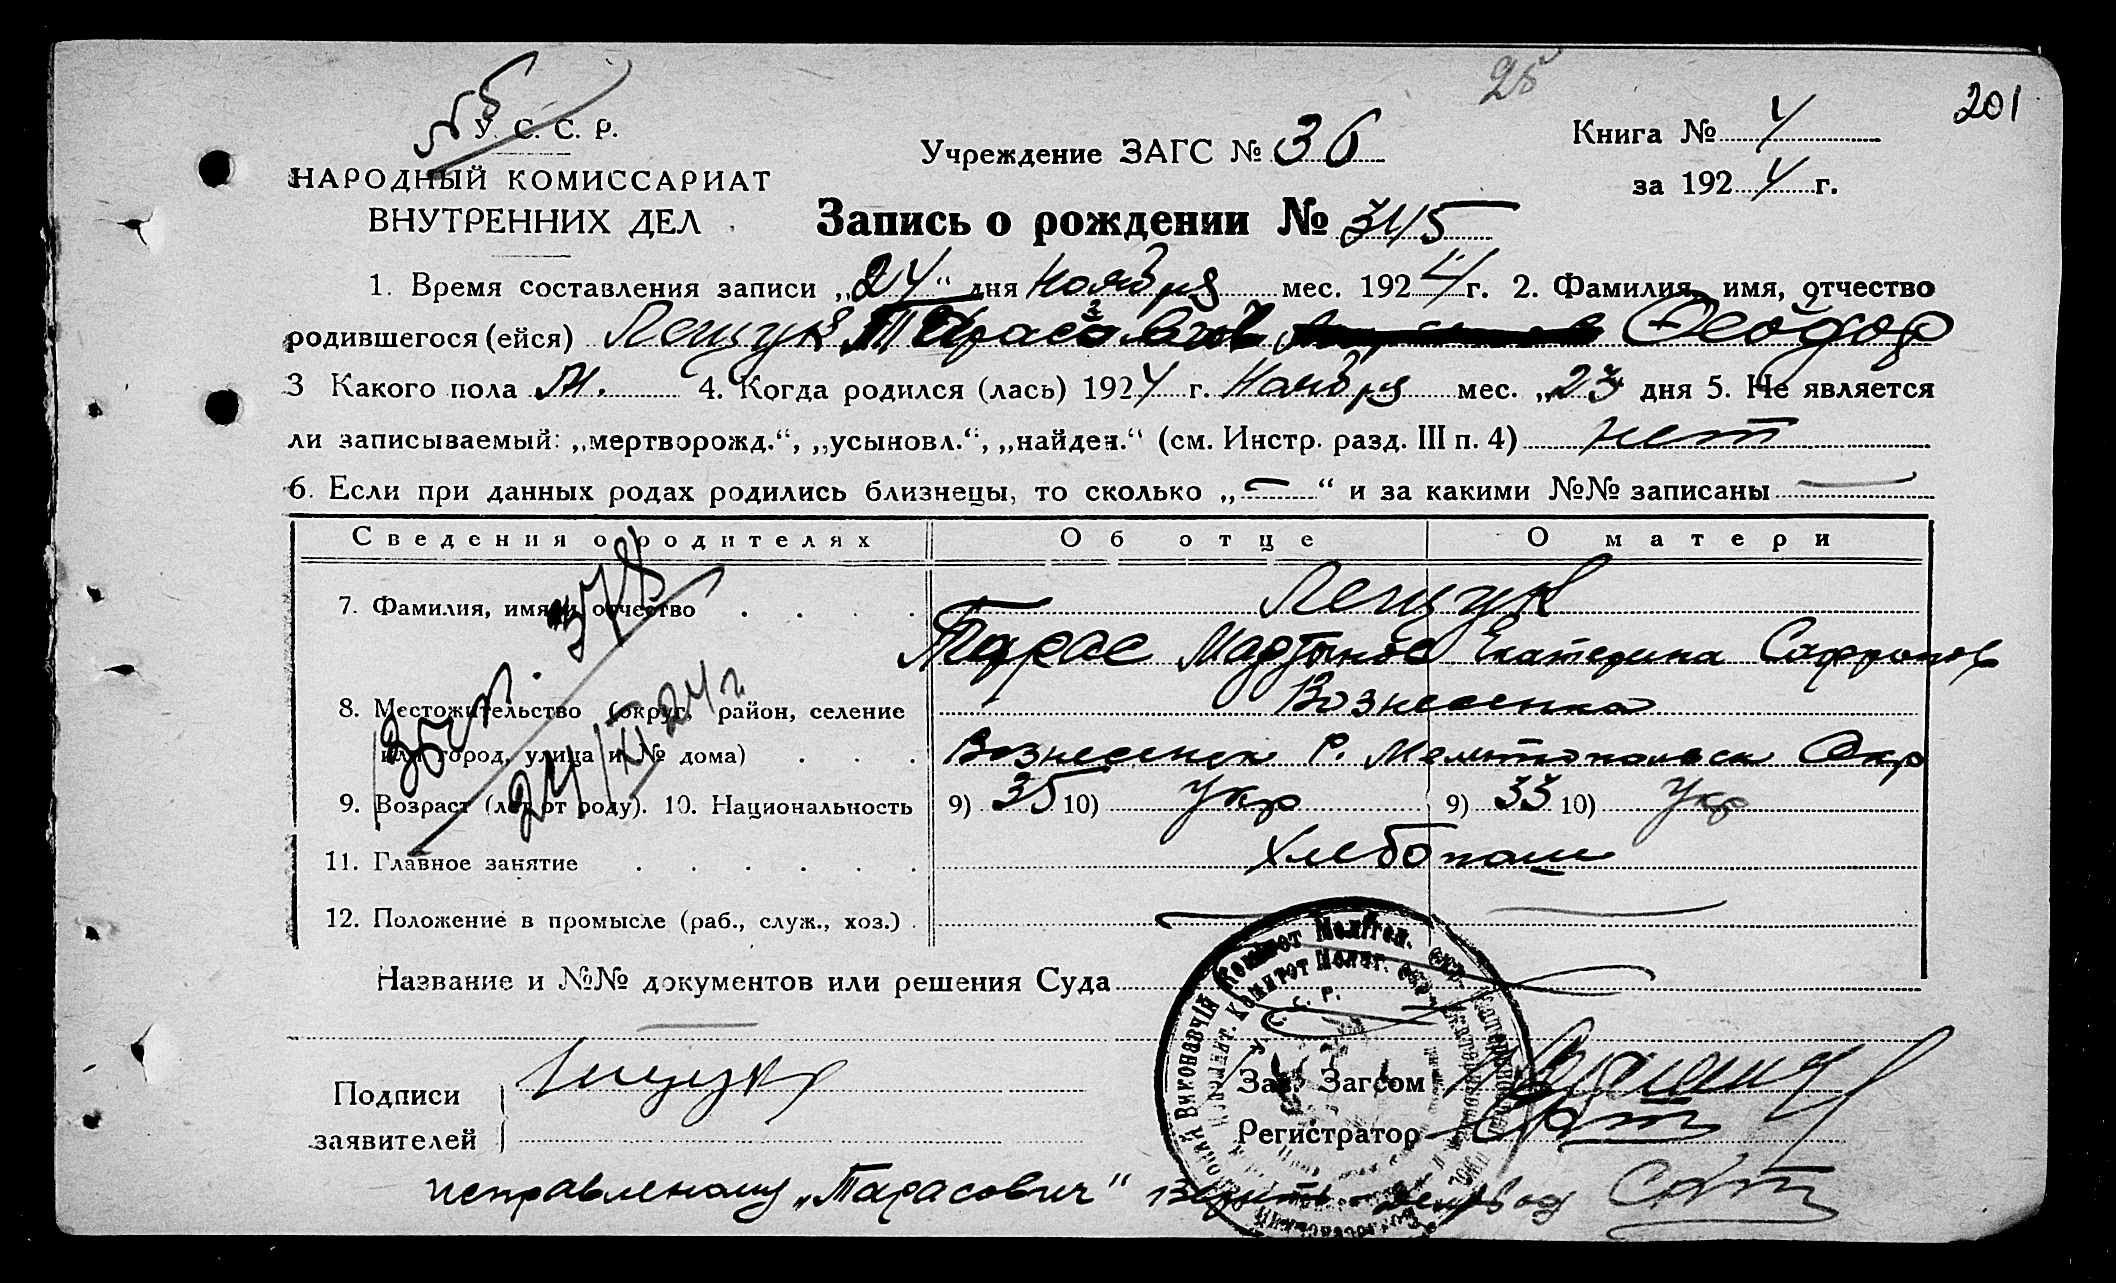 № 5
25
201
У. С. С. Р.
НАРОДНЫЙ КОМИССАРИАТ
ВНУТРЕННИХ ДЕЛ
Учреждение ЗАГС № 36
Книга № 4
за 1924 г.
Запись о рождении № 345
1. Время составления записи „24“ дня Ноября мес. 1924 г. 2. Фамилия, имя, отчество
родившегося (ейся) Лещук Тарасович Феодор
3 Какого пола М. 4. Когда родился (лась) 1924 г. Ноября мес. „23 дня 5. Не является
ли записываемый: „мертворожд.“, „усыновл.“, „найден.“ (см. Инстр. разд. III п. 4) нет
6. Если при данных родах родились близнецы, то сколько „—“ и за какими №№ записаны —
Сведения о родителях Об отце О матери
7. Фамилия, имя и отчество Лещук
Тарас Мартынов Екатерина Сафронов
8. Местожительство (округ, район, селение Вознесенка
или город, улица и № дома) Вознесенск Р. Мелитопольск Окр
9. Возраст (лет от роду). 10. Национальность 9) 35 10) Укр 9) 33 10) Укр
11. Главное занятие Хлебопаш
12. Положение в промысле (раб., служ., хоз.)
378
24/XI 24 г
Название и №№ документов или решения Суда
Подписи
заявителей
Лещук
Зав. Загсом
Регистратор
исправленому „Тарасович“